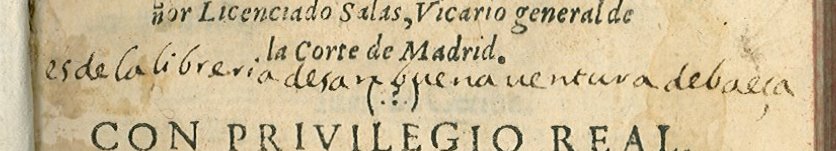 ñor Licenciado Salas, Vicario general de
la Corte de Madrid.
es de la libreria de san buena ventura de baeça
(.?.)
CON PRIVILEGIO REAL.